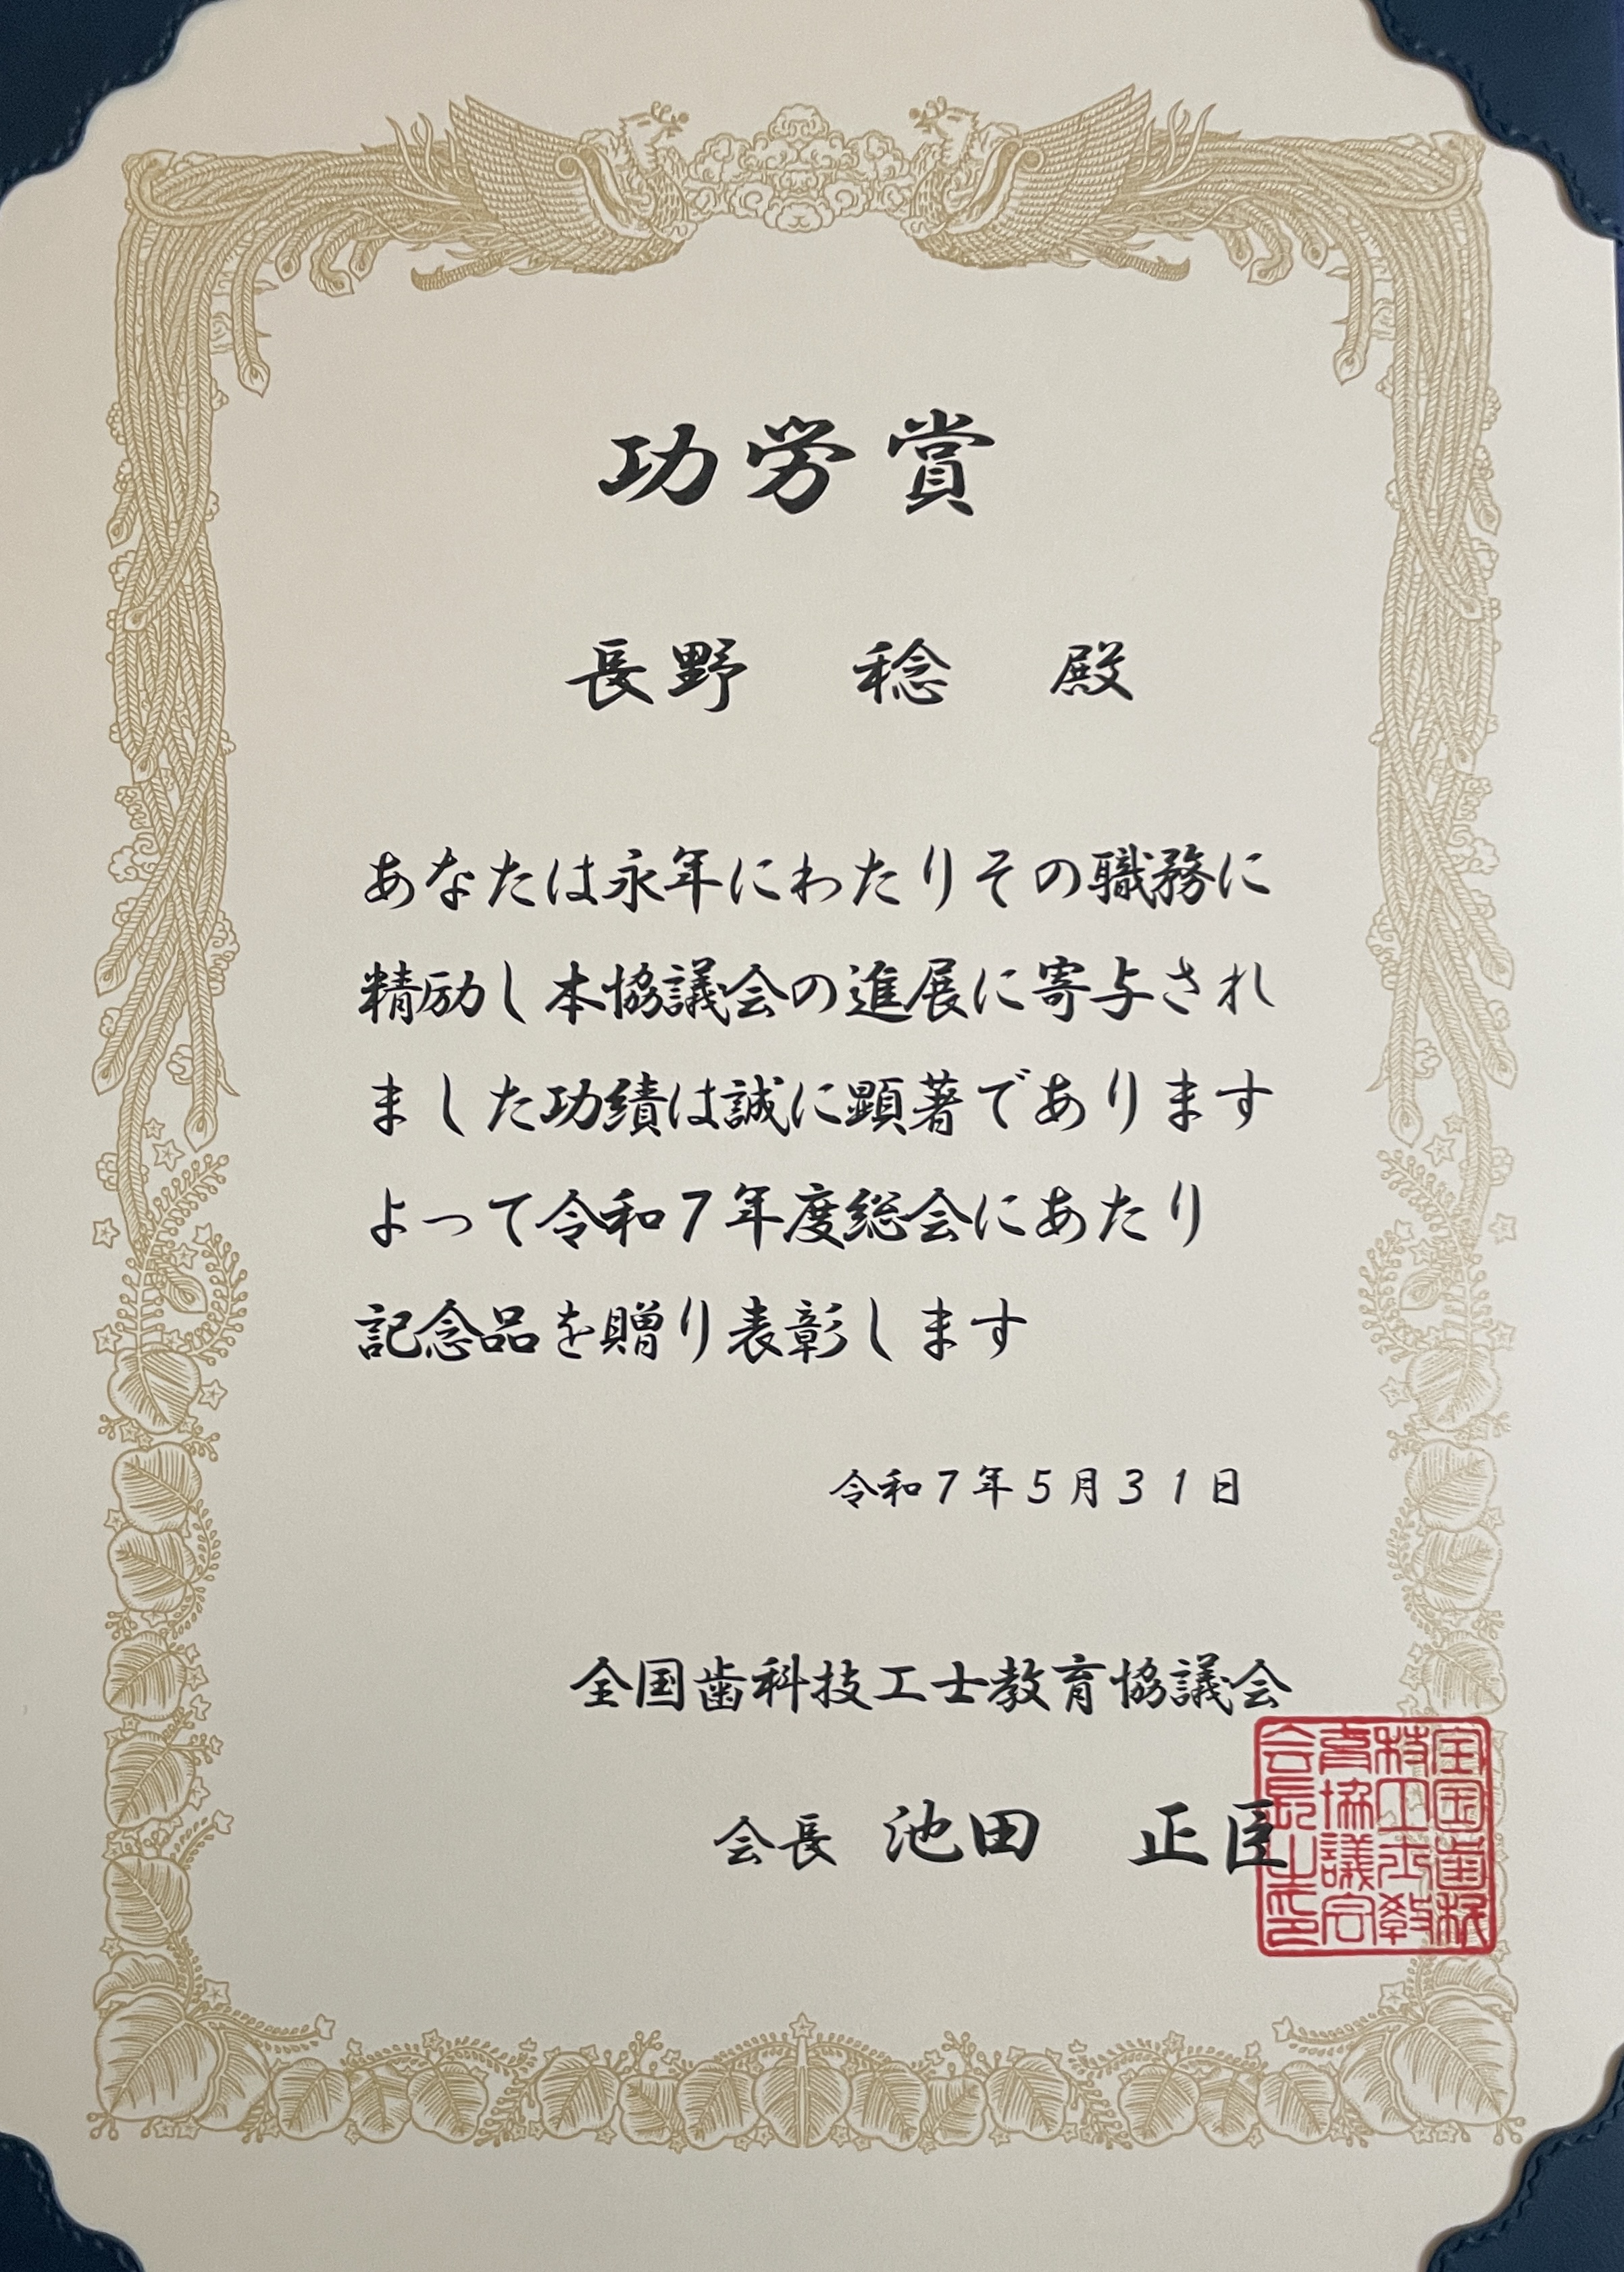 功労賞
長野 稔 殿
あなたは永年にわたりその職務に
精励し本協議会の進展に寄与され
ました功績は誠に顕著であります
よって令和7年度総会にあたり
記念品を贈り表彰します
令和7年5月31日
全国歯科技工士教育協議会
会長 池田 正臣
全国歯科
技工士教
育協議会
会長之印